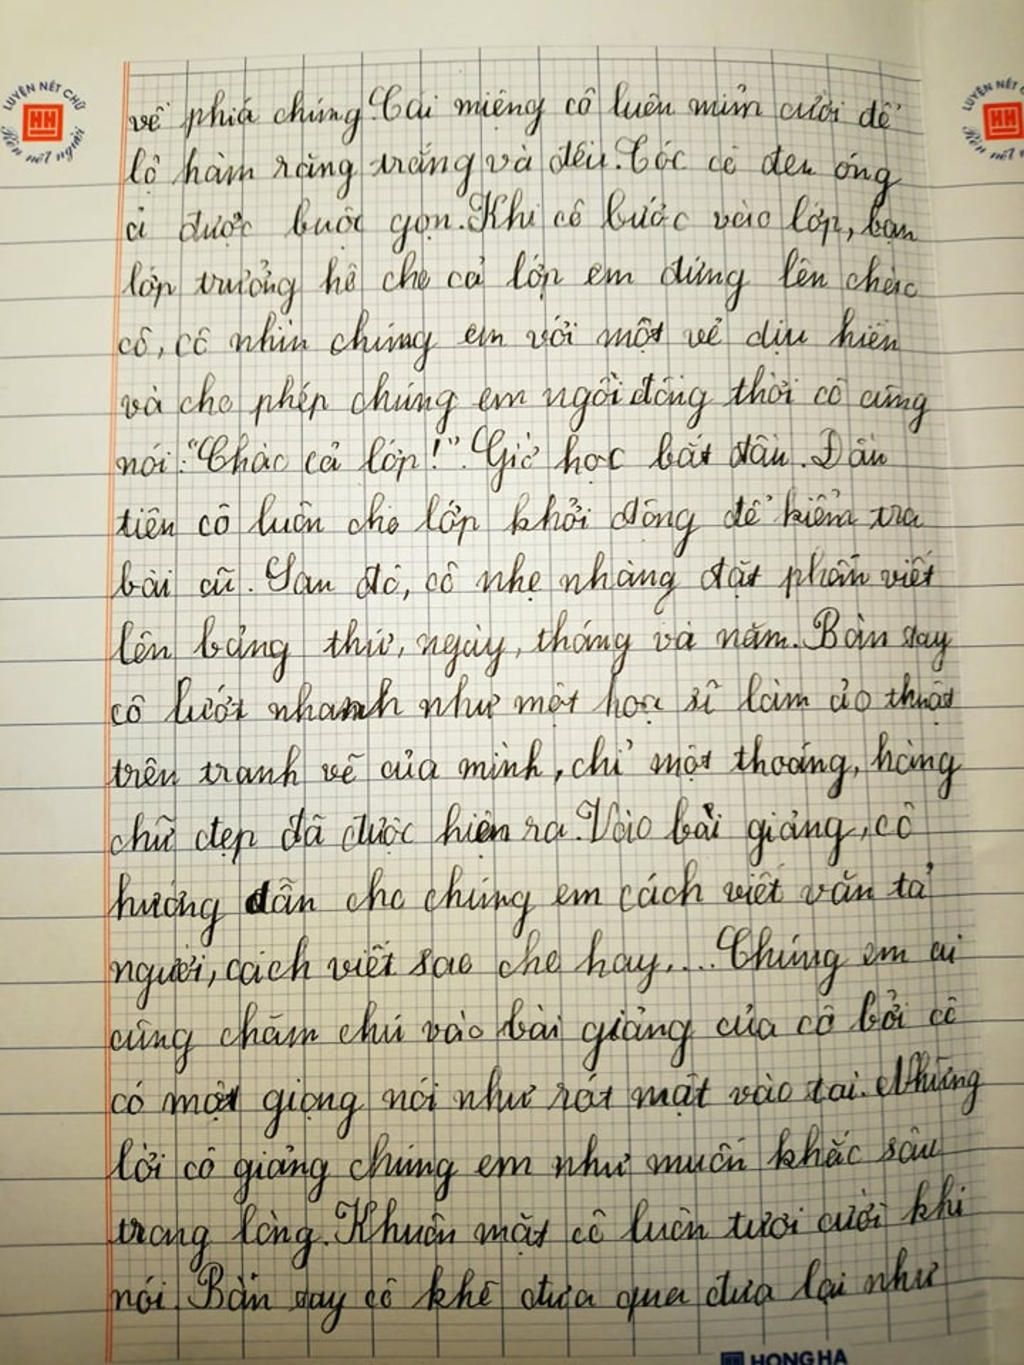 LUYỆN NÉT CHỮ
Rèn nết người
LUYỆN NÉT CHỮ
về phiá chúng. Cái miệng cô luôn mỉm cười để
lộ hàm răng trắng và đều. Tóc cô đen óng
ả được buộc gọn. Khi cô bước vào lớp, bạn
lớp trưởng hô cho cả lớp em đứng lên chào
cô, cô nhìn chúng em với một vẻ dịu hiền
và cho phép chúng em ngồi đồng thời cô cũng
nói: "Chào cả lớp!". Giờ học bắt đầu. Đầu
tiên cô luôn cho lớp khởi động để kiểm tra
bài cũ. Sau đó, cô nhẹ nhàng đặt phấn viết
lên bảng thứ, ngày, tháng và năm. Bàn tay
cô lướt nhanh như một họa sĩ làm ảo thuật
trên tranh vẽ của mình, chỉ một thoáng, hàng
chữ đẹp đã được hiện ra. Vào bài giảng, cô
hướng dẫn cho chúng em cách viết văn tả
người, cách viết sao cho hay,... Chúng em ai
cũng chăm chú vào bài giảng của cô bởi cô
có một giọng nói như rót mật vào tai. Những
lời cô giảng chúng em như muốn khắc sâu
trong lòng. Khuôn mặt cô luôn tươi cười khi
nói. Bàn tay cô khẽ đưa qua đưa lại như
HONG HA